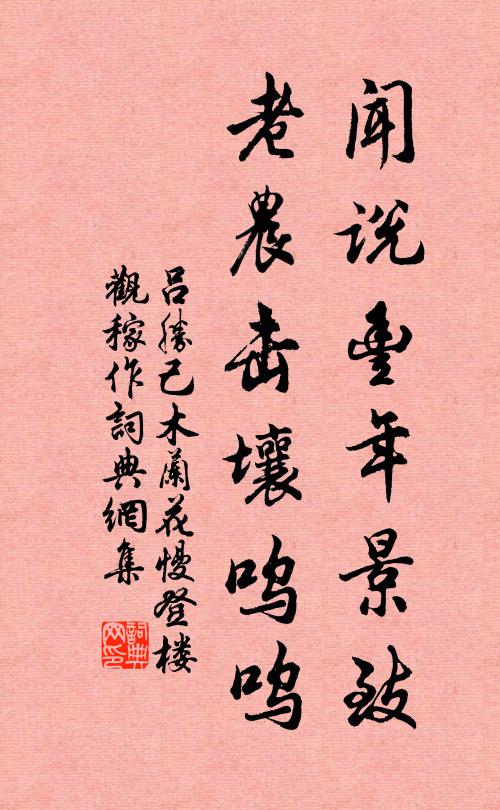 闻说丰年景致
老農击壤呜呜
吕勝己木蘭花慢登楼
觀稼作詞典網集
詞典网印